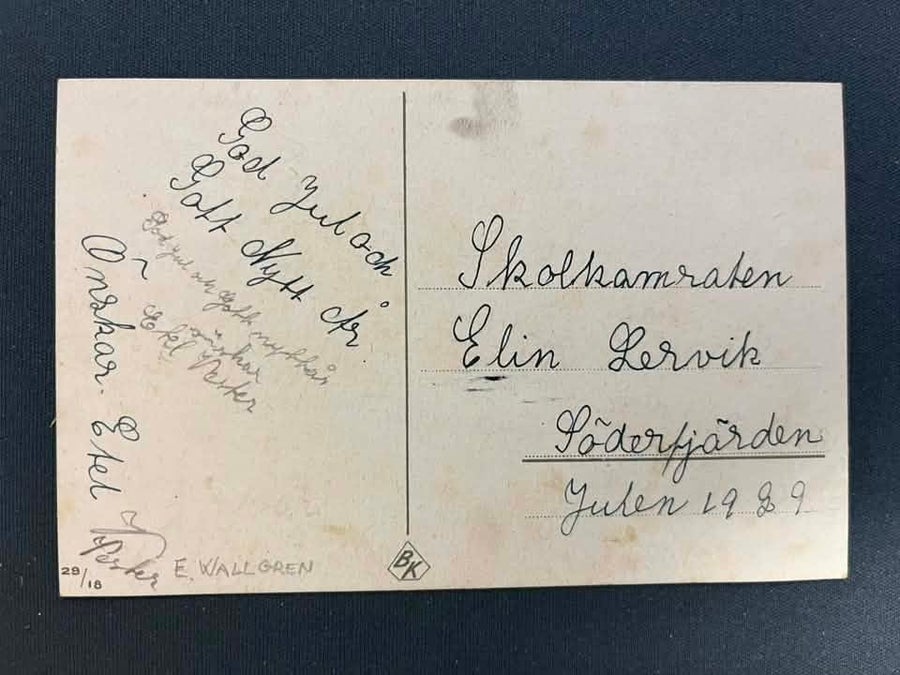 God Jul och
Gott Nytt År
Önskar. Etel
Vester
God Jul och Gott nytt år
önskar
Etel Vester
29/18
E. WALLGREN
BK
Skolkamraten
Elin Lervik
Söderfjärden
Julen 1929